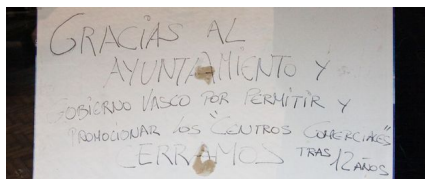 GRACIAS AL
AYUNTAMIENTO Y
GOBIERNO VASCO POR PERMITIR Y
PROMOCIONAR LOS "CENTROS COMERCIALES"
CERRAMOS TRAS 12 AÑOS